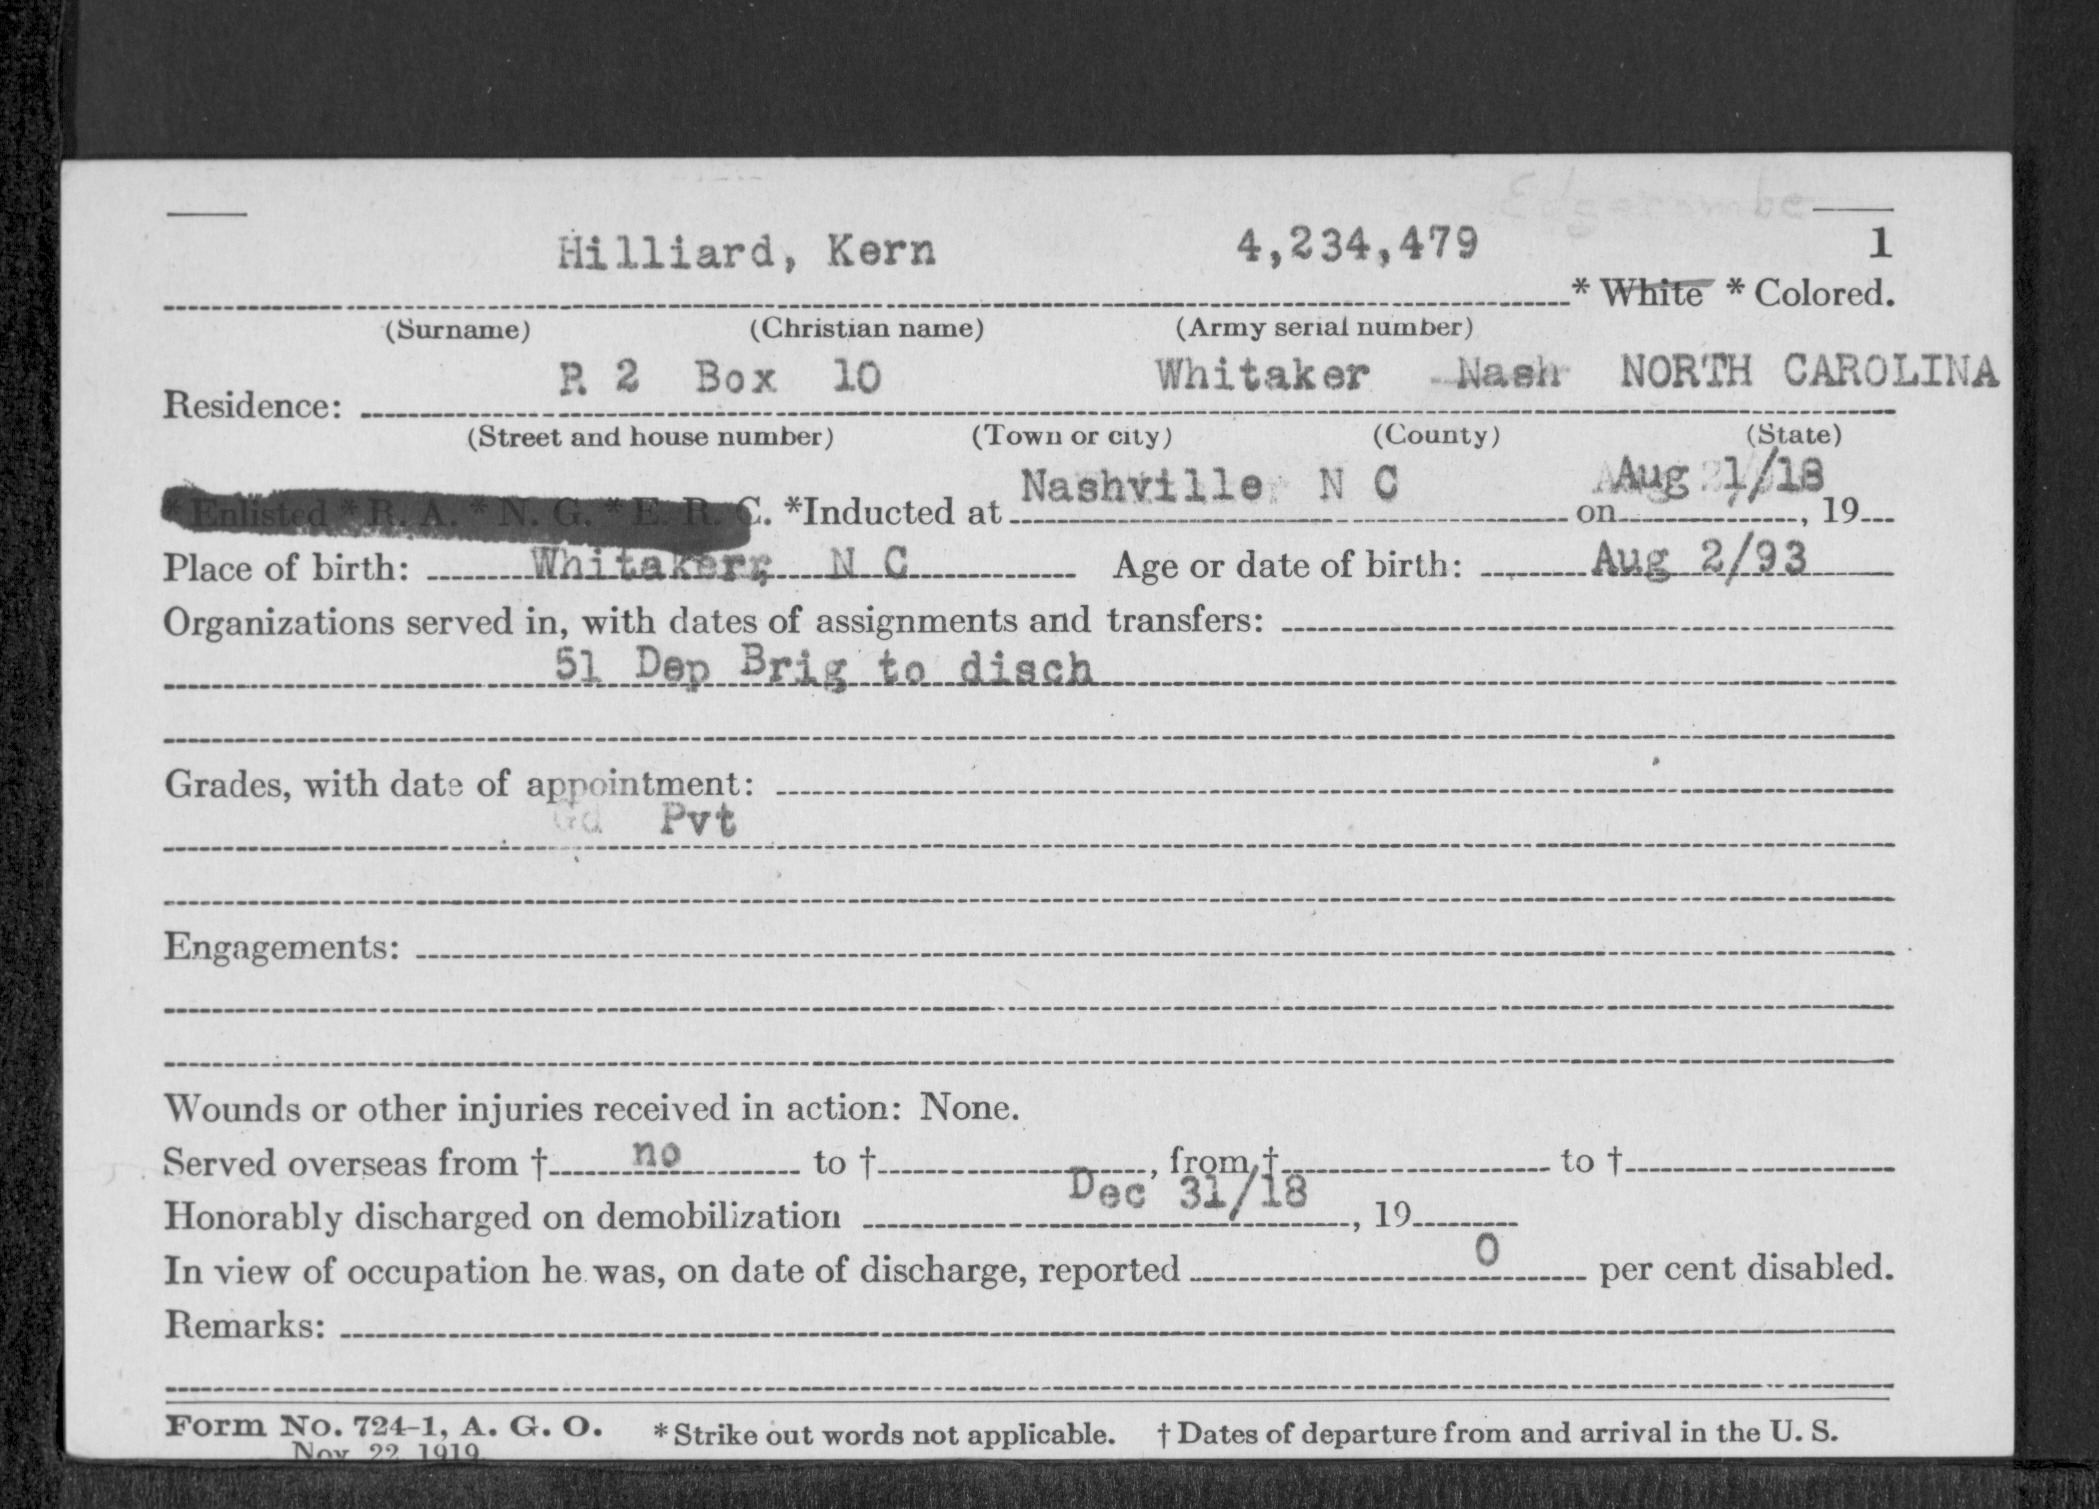 Edgecombe
Hilliard, Kern 4,234,479 1
* White * Colored.
(Surname) (Christian name) (Army serial number)
Residence: R 2 Box 10 Whitaker Nash NORTH CAROLINA
(Street and house number) (Town or city) (County) (State)
* Enlisted * R. A. * N. G. * E. R. C. *Inducted at Nashville N C on Aug 1/18, 19
Place of birth: Whitakerr, N C Age or date of birth: Aug 2/93
Organizations served in, with dates of assignments and transfers:
51 Dep Brig to disch
Grades, with date of appointment:
Gd Pvt
Engagements:
Wounds or other injuries received in action: None.
Served overseas from † no to †, from † to †
Honorably discharged on demobilization Dec 31/18, 19
In view of occupation he was, on date of discharge, reported 0 per cent disabled.
Remarks:
Form No. 724-1, A. G. O. * Strike out words not applicable. † Dates of departure from and arrival in the U. S.
Nov 22 1919